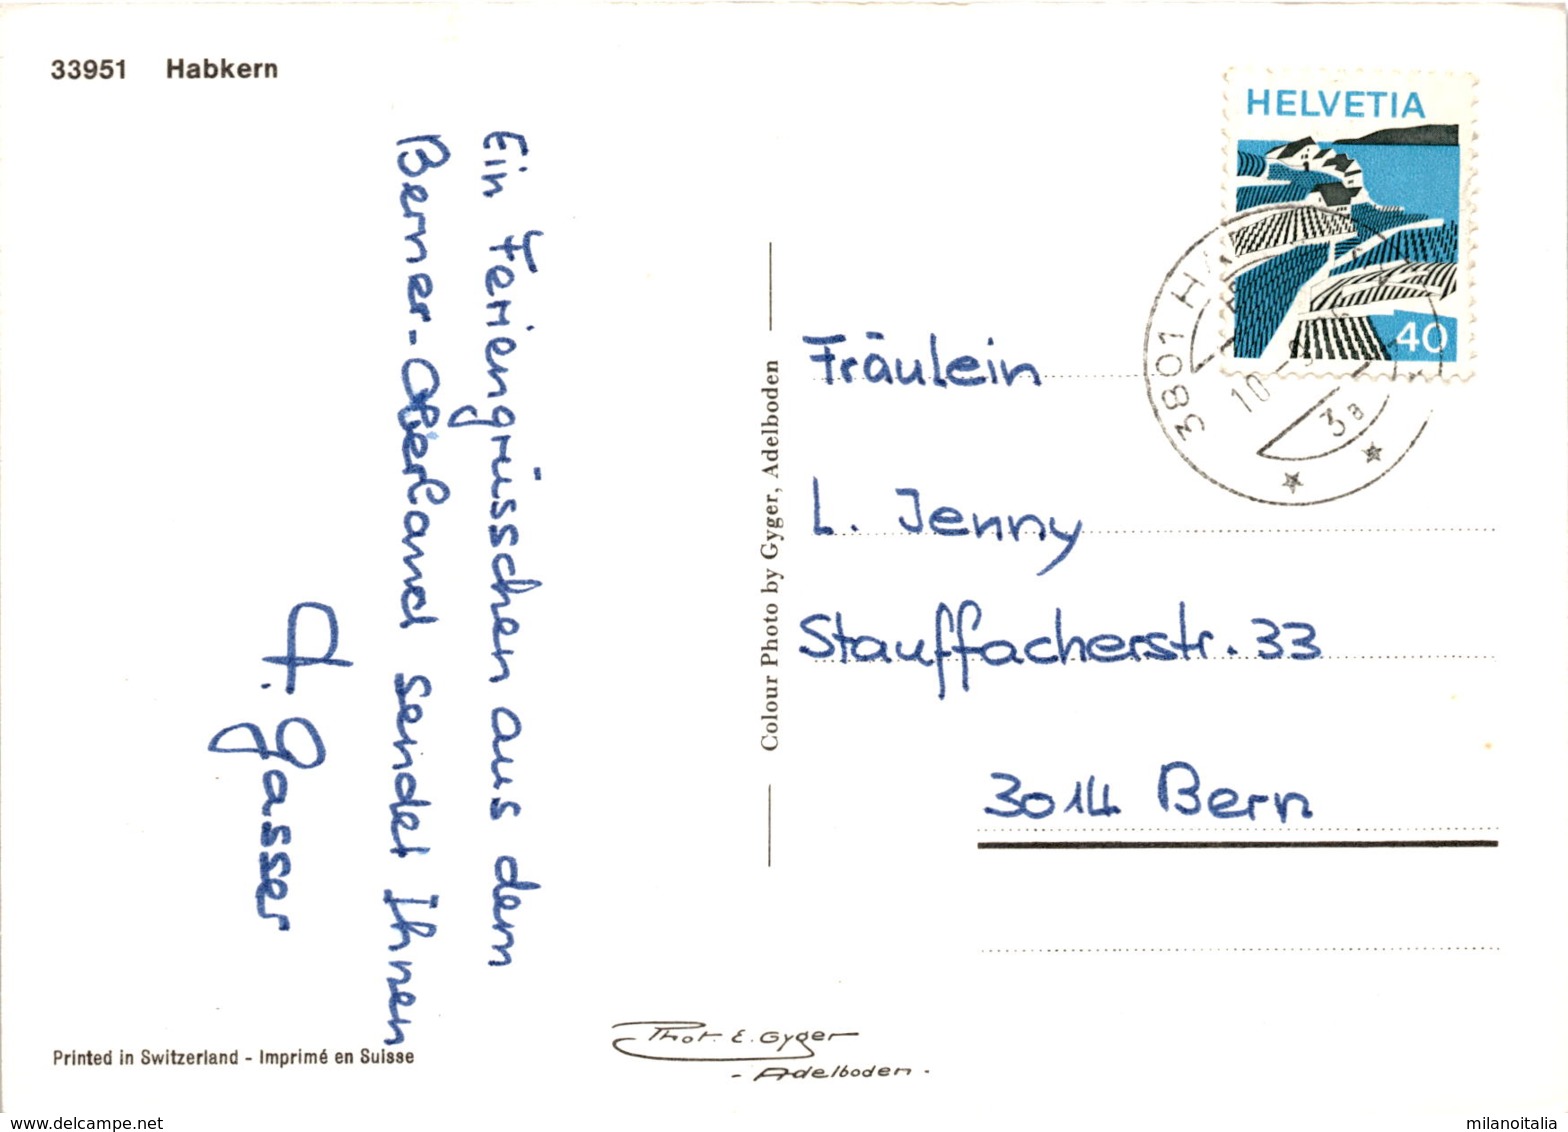 33951 Habkern
Ein Feriengrüsschen aus dem
Berner-Oberland sendet Ihnen
Gasser
Printed in Switzerland - Imprimé en Suisse
Colour Photo by Gyger, Adelboden
Phot. E. Gyger
- Adelboden -
HELVETIA
40
3801 HA
10
3a
Fräulein
L. Jenny
Stauffacherstr. 33
3014 Bern
www.delcampe.net
milanoitalia